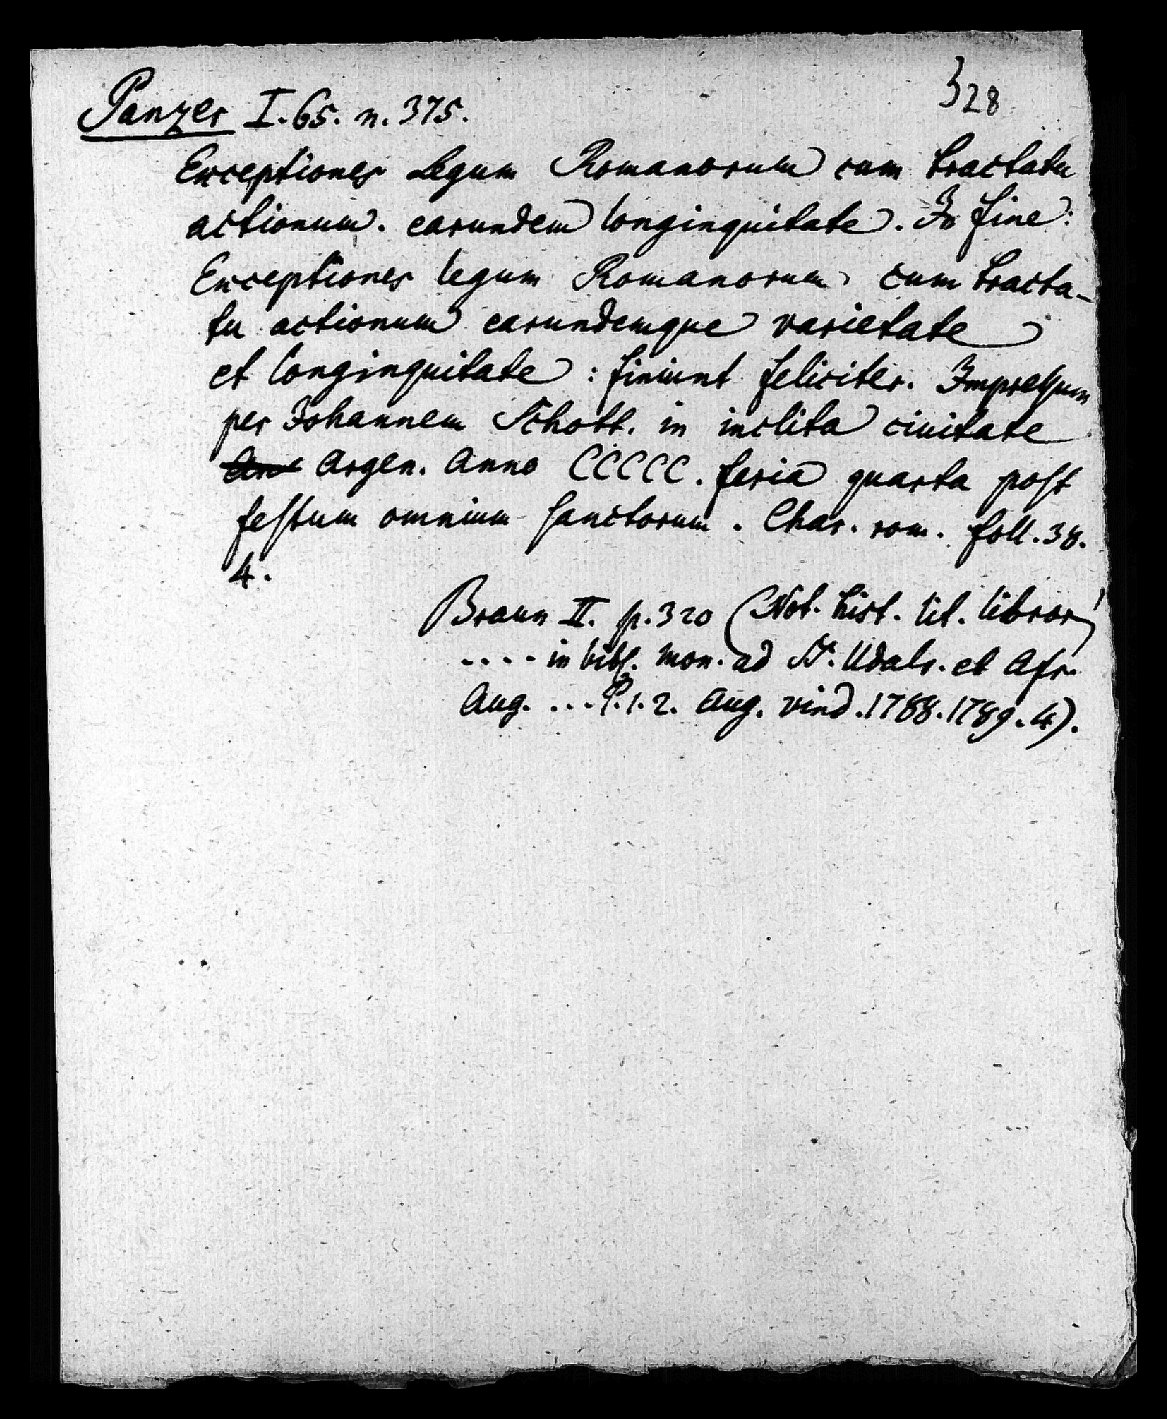 328
Panzer I. 65. n. 375.
Exceptiones Legum Romanorum cum tractatu
actionum. earundem longinquitate. In fine:
Exceptiones legum Romanorum cum tracta-
tu actionum earundemque varietate
et longinquitate: finiunt feliciter. Impressum
per Johannem Schott. in inclita ciuitate
An Argen. Anno CCCCC. feria quarta post
festum omnium sanctorum. Char. rom. foll. 38.
4.
Braun II. p. 320 (Not. hist. lit. libror
.... in bibl. mon. ad St. Udalr. et Afr.
Aug. ... P. 1. 2. Aug. vind. 1788. 1789. 4).